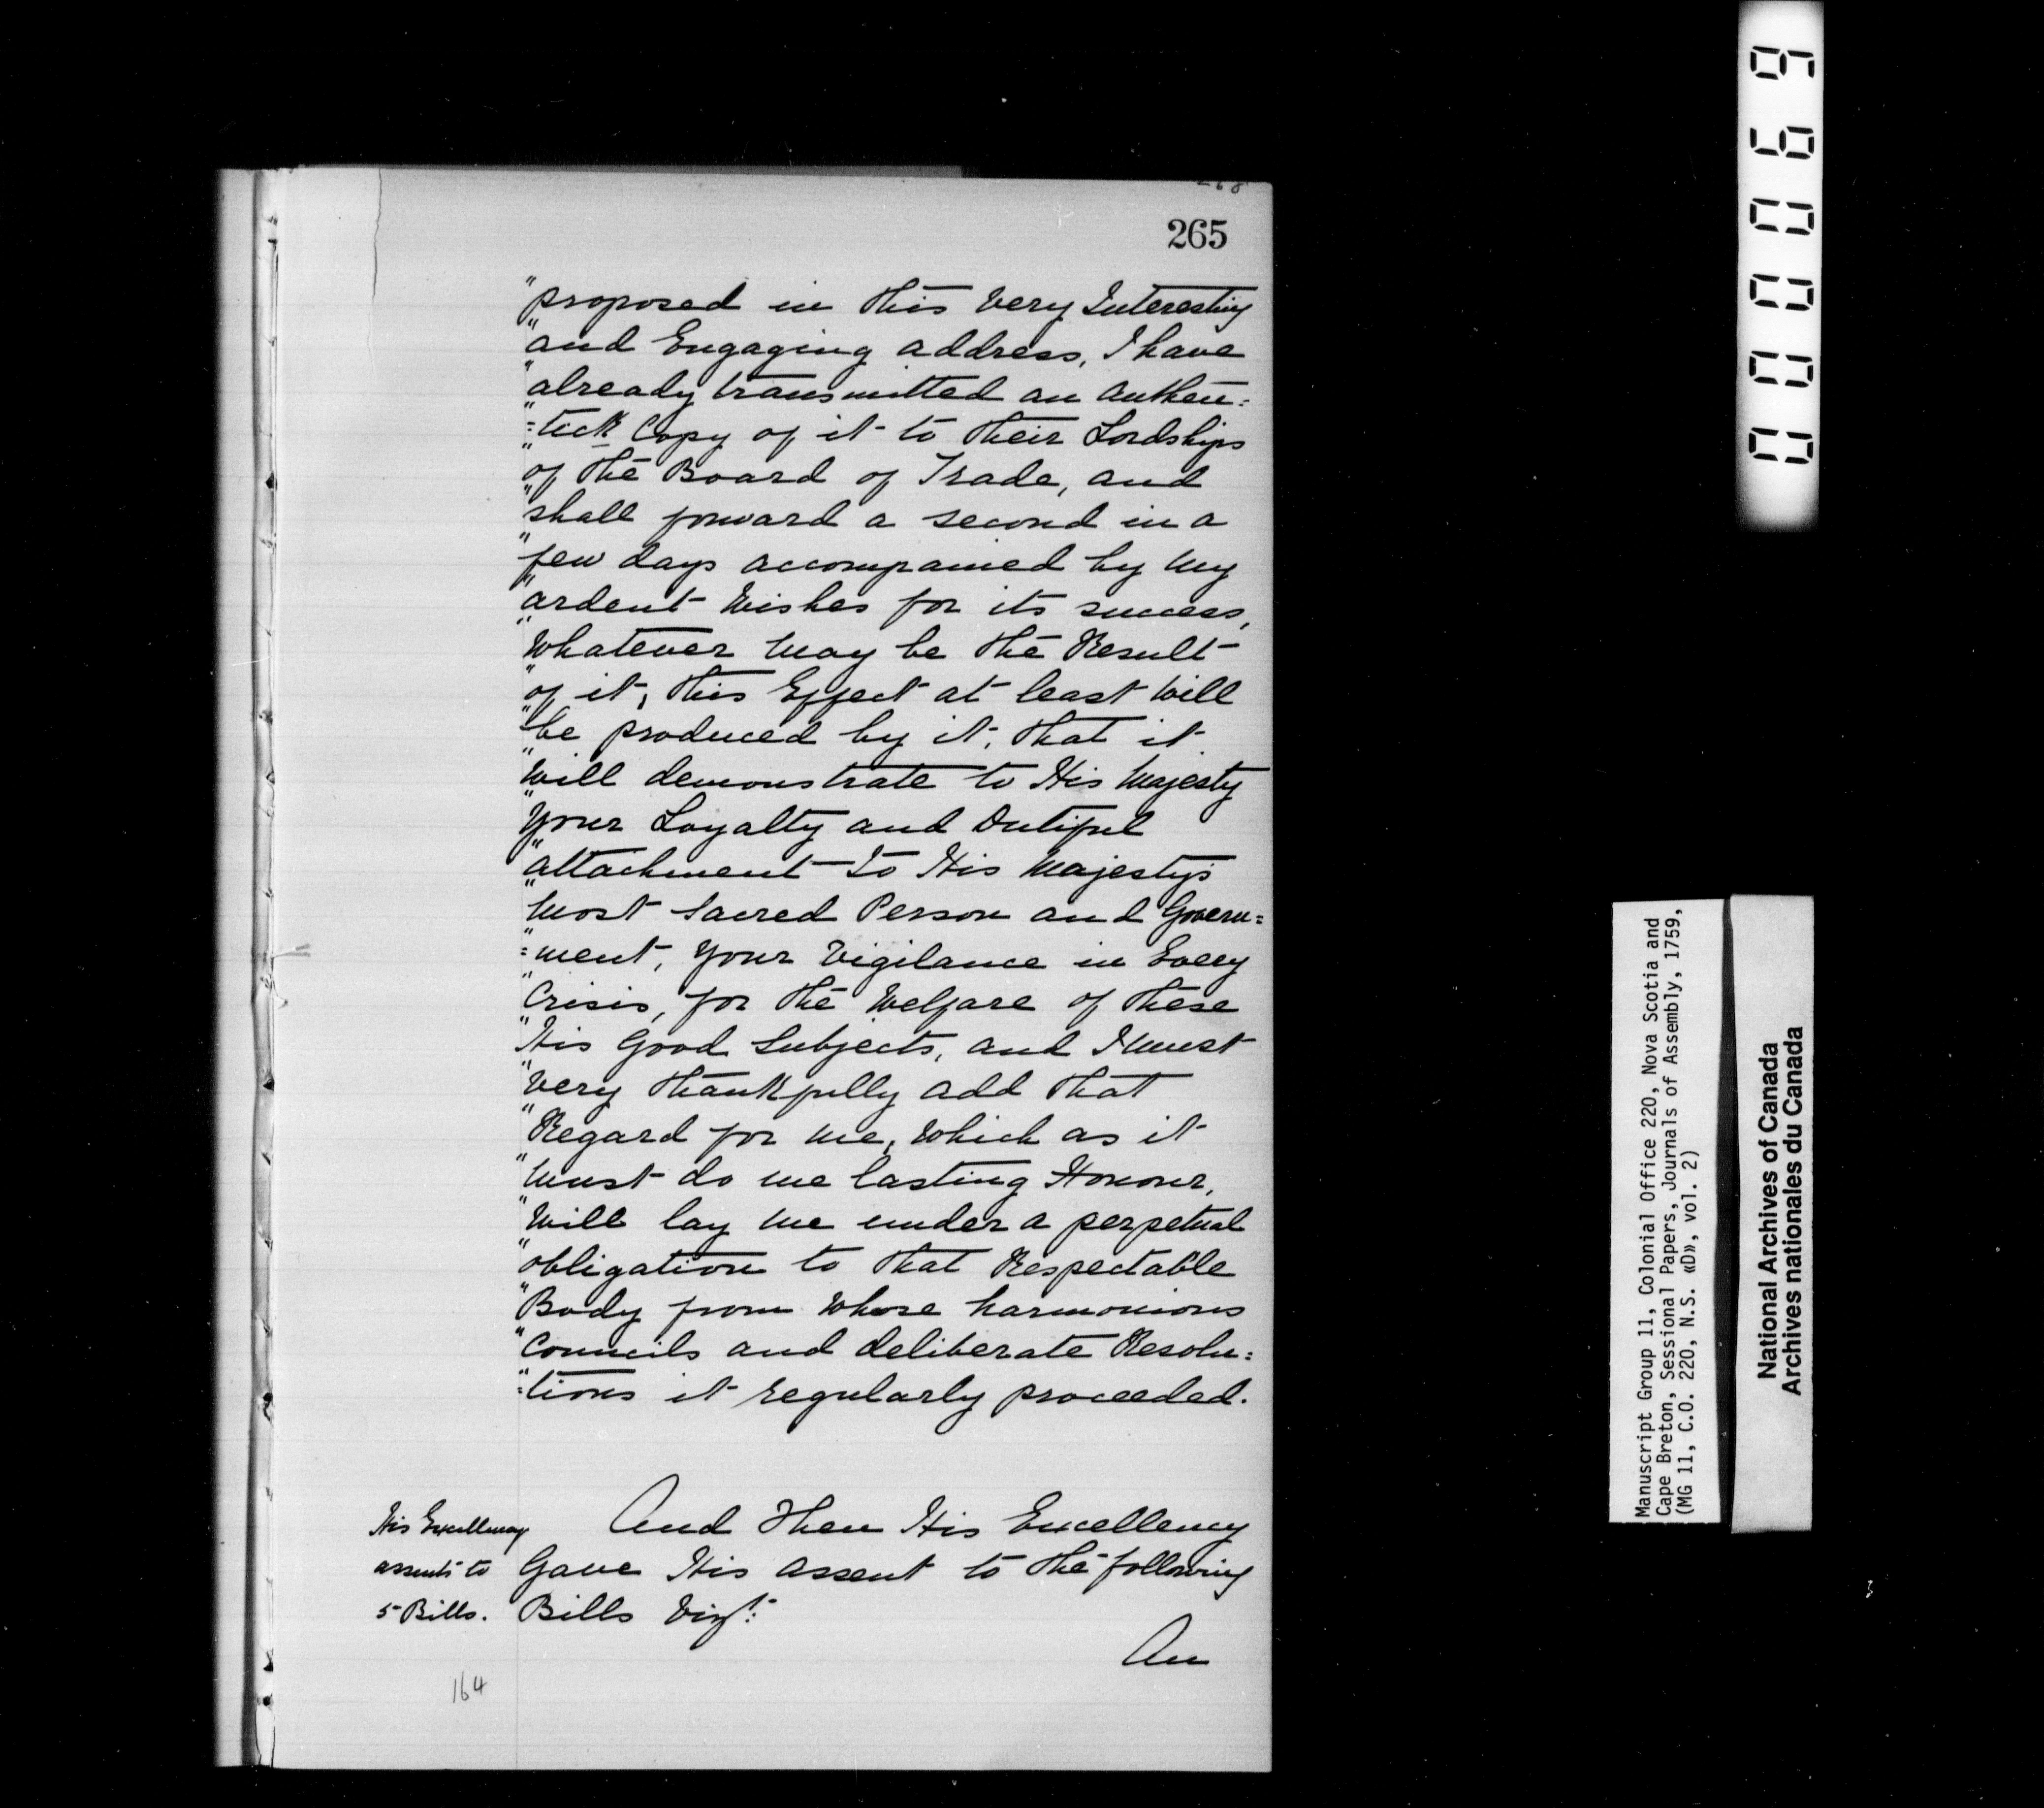 265
"proposed in this very Interesting
"and Engaging address, I have
"already transmitted an authen=
"=tick Copy of it to their Lordships
"of the Board of Trade, and
"shall forward a second in a
"few days accompanied by my
"ardent Wishes for its success,
"Whatever may be the Result
"of it, this Effect at least will
"be produced by it, that it
"Will demonstrate to His Majesty
"Your Loyalty and Dutiful
"attachment to His Majesty's
"Most Sacred Person and Govern=
"=ment, Your Vigilance in Every
"Crisis, for the Welfare of these
"His Good Subjects, and I must
"very thankfully add that
"Regard for me, Which as it
"must do me lasting Honour,
"Will lay me under a perpetual
"obligation to that Respectable
"Body from whose harmonious
"Councils and deliberate Resolu=
"=tions it regularly proceeded.
And Then His Excellency
Gave His assent to the following
Bills Vizt:
An
His Excellency
assents to
5 Bills.
164
000069
Manuscript Group 11, Colonial Office 220, Nova Scotia and
Cape Breton, Sessional Papers, Journals of Assembly, 1759,
(MG 11, C.O. 220, N.S. «D», vol. 2)
National Archives of Canada
Archives nationales du Canada